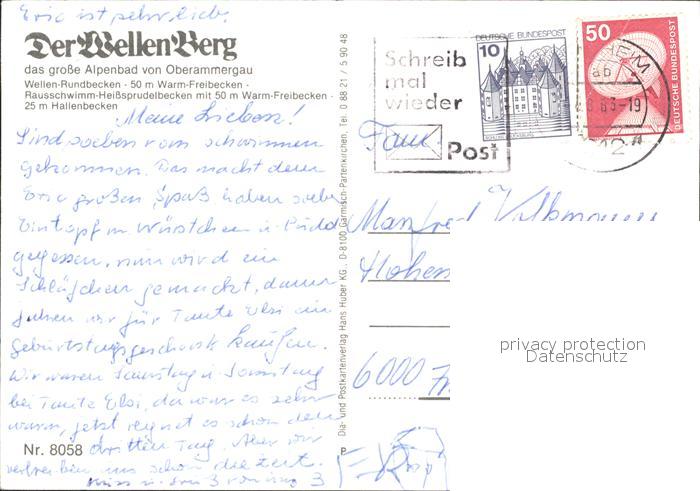 Eric ist sehr lieb.
Der Wellen Berg
das große Alpenbad von Oberammergau
Wellen-Rundbecken · 50 m Warm-Freibecken ·
Rauschwimm-Heißsprudelbecken mit 50 m Warm-Freibecken ·
25 m Hallenbecken
Meine Lieben!
Sind soeben vom schwimmen
gekommen. Das macht dem
Eric großen Spaß haben soeben
Eintopf m Würstchen u. Pudd
gegessen, nun wird ein
Schläfchen gemacht, dann
fahren wir für Tante Elsi ein
Geburtstagsgeschenk kaufen.
Wir waren Samstag u. Sonntag
bei Tante Elsi, da war es sehr
warm, jetzt regnet es schon den
dritten Tag. Aber wir
vertreiben uns schon die Zeit.
Nr. 8058
Dia- und Postkartenverlag Hans Huber KG., D-8100 Garmisch-Partenkirchen, Tel. 0 88 21 / 5 90 48
Schreib
mal
wieder
Post
10
DEUTSCHE BUNDESPOST
50
DEUTSCHE BUNDESPOST
Fam.
Manfred
Hohen
6000
privacy protection
Datenschutz